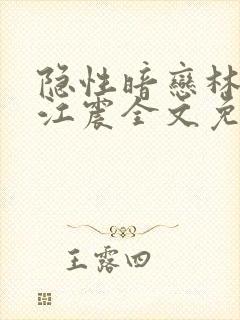 隐性暗戀林
江震全文免
王露四